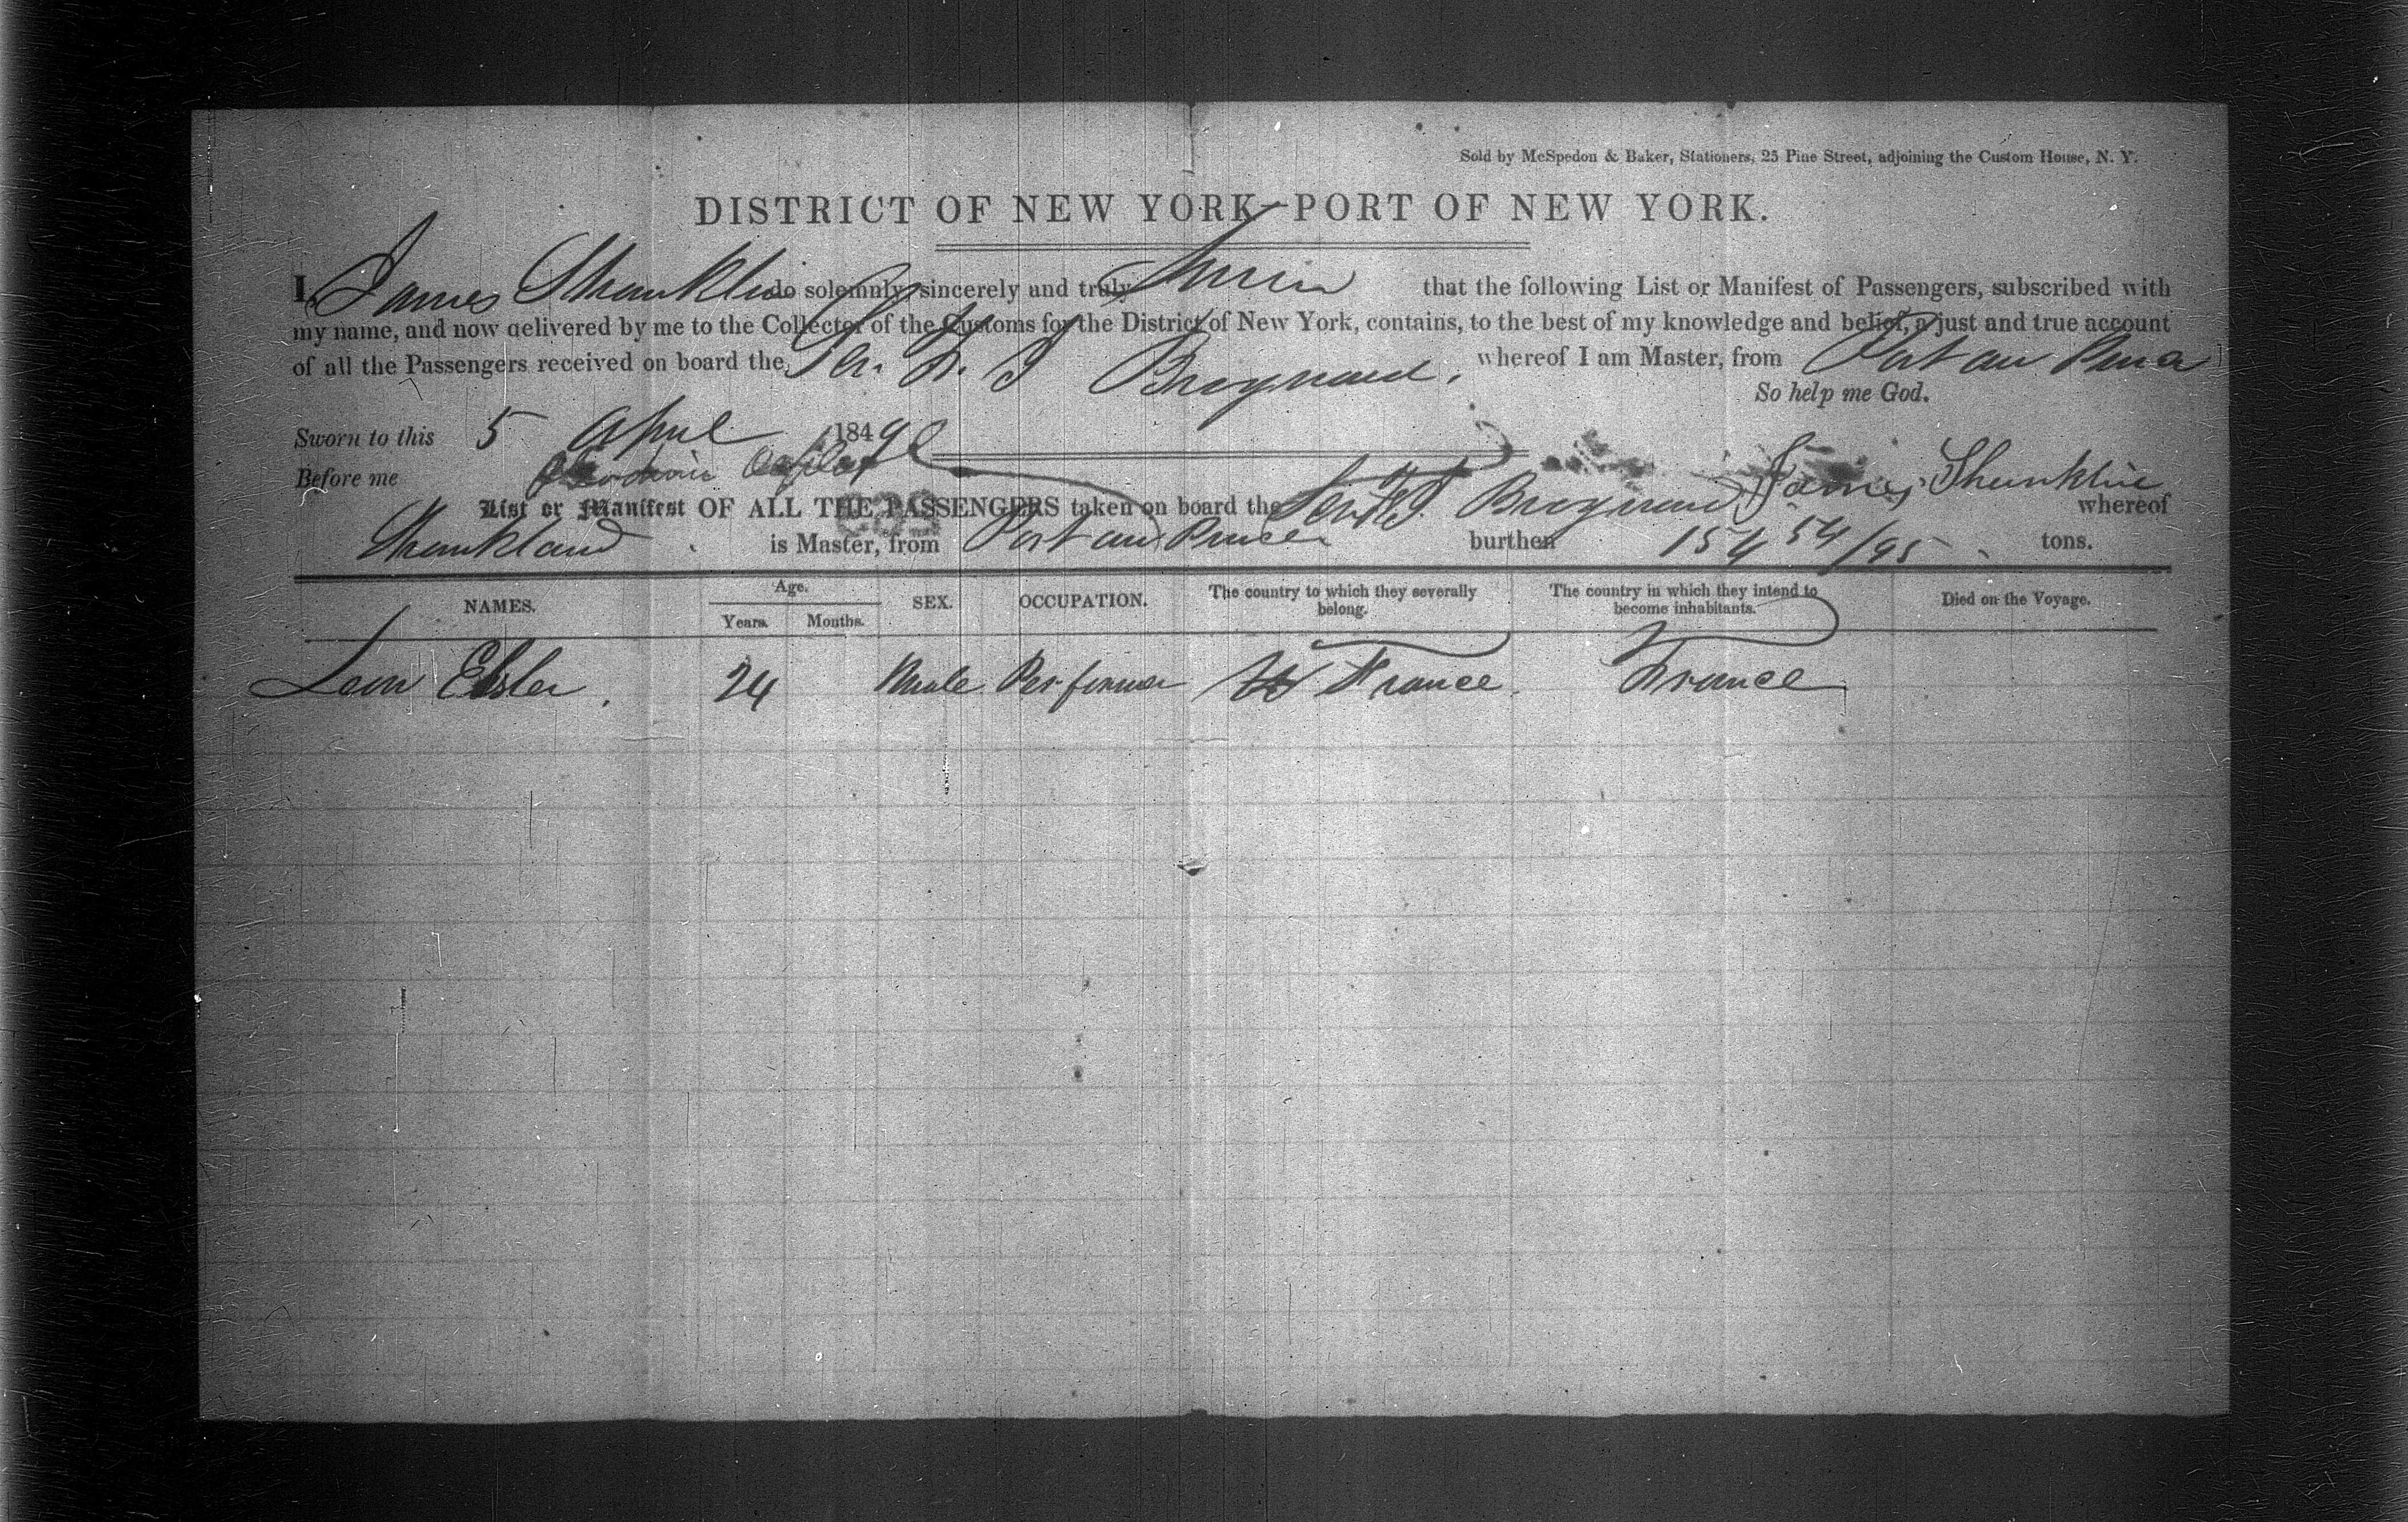 Sold by McSpedon & Baker, Stationers, 25 Pine Street, adjoining the Custom House, N. Y.
DISTRICT OF NEW YORK—PORT OF NEW YORK.
I, James Shanklin do solemnly, sincerely and truly that the following List or Manifest of Passengers, subscribed with
my name, and now delivered by me to the Collector of the Customs for the District of New York, contains, to the best of my knowledge and belief, a just and true account
of all the Passengers received on board the whereof I am Master, from Port au
So help me God.
Sworn to this 5 April 1849
Before me
James Shanklin
List or Manifest OF ALL THE PASSENGERS taken on board the whereof
Shankland is Master, from Port au Prince burthen 154 54/95 tons.
NAMES. Age. Years. Months. SEX. OCCUPATION. The country to which they severally belong. The country in which they intend to become inhabitants. Died on the Voyage.
Leon 24 Male Performer France France